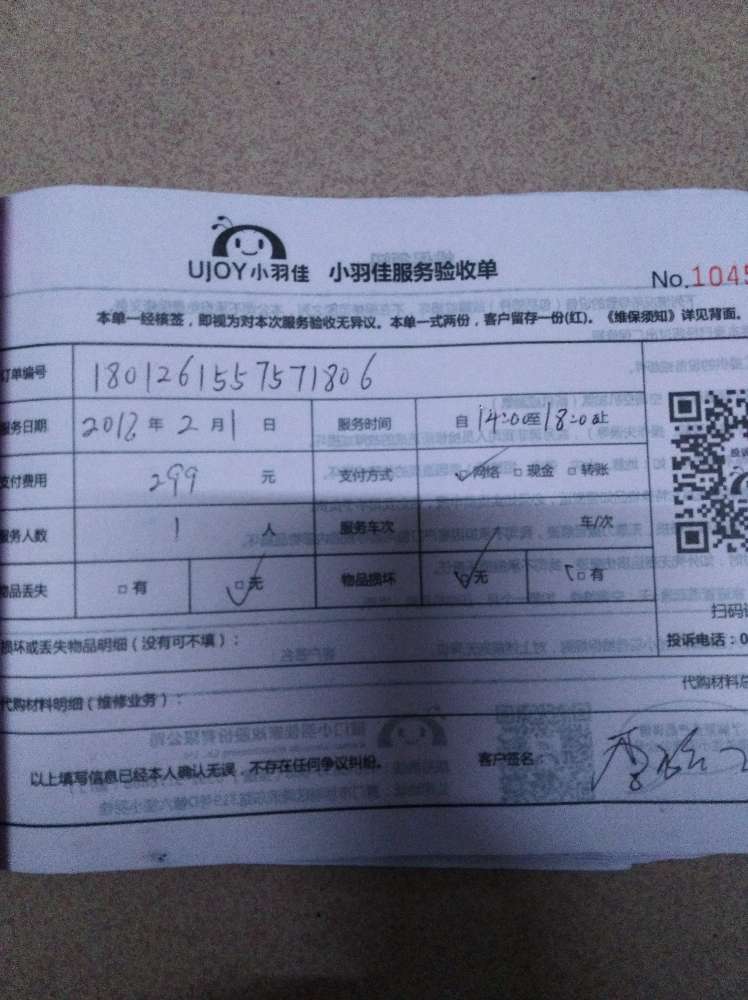 UJOY小羽佳 小羽佳服务验收单
No.1045
本单一经核签，即视为对本次服务验收无异议。本单一式两份，客户留存一份(红)。《维保须知》详见背面。
订单编号 1801261557571806
服务日期 2018年2月1日 服务时间 自14:00至18:00止
支付费用 299 元 支付方式 网络 □现金 □转账
服务人数 1 人 服务车次 车/次
物品丢失 □有 □无 物品损坏 □无 □有
扫码
损坏或丢失物品明细（没有可不填）： 投诉电话：0
代购材料明细（维修业务）： 代购材料总
以上填写信息已经本人确认无误，不存在任何争议纠纷。 客户签名：